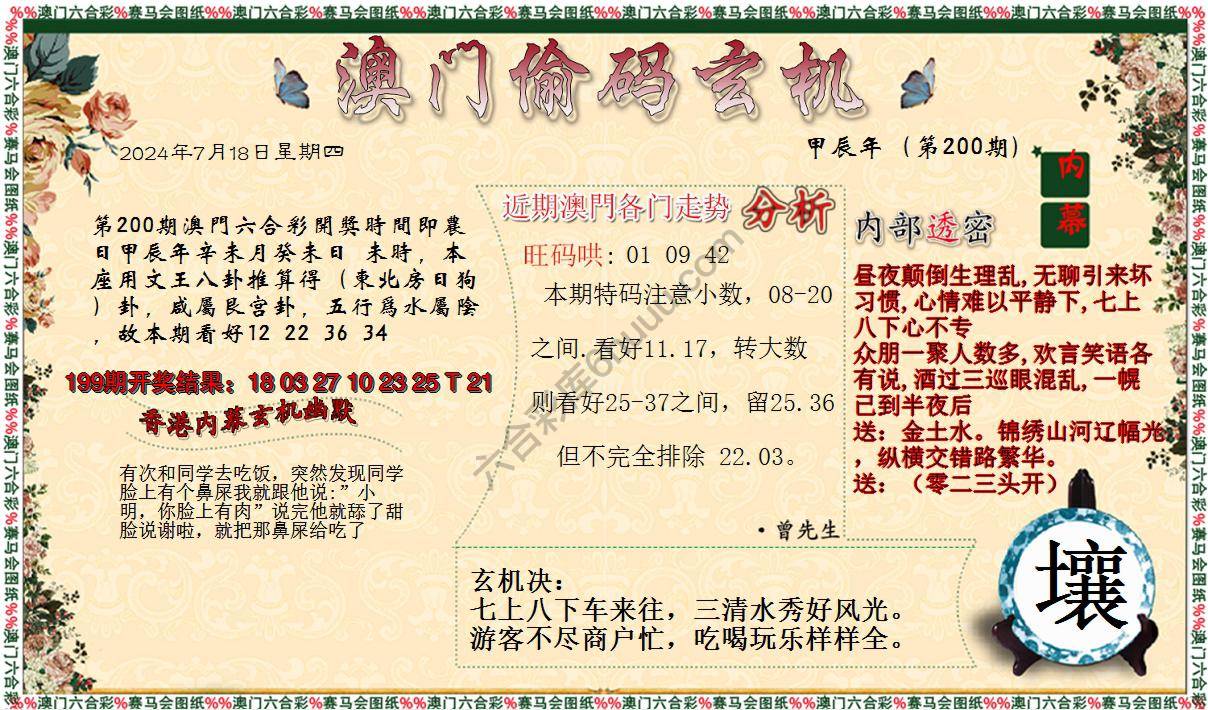 %%澳门六合彩%赛马会图纸%%澳门六合彩%赛马会图纸%%澳门六合彩%赛马会图纸%%澳门六合彩%赛马会图纸%%澳门六合彩%赛马会图纸%%澳门六合彩%赛马会图纸%%
澳门偷码玄机
2024年7月18日星期四
甲辰年（第200期）
内
幕
第200期澳門六合彩開獎時間即農
日甲辰年辛未月癸未日 未時，本
座用文王八卦推算得（東北房日狗
）卦，咸屬艮宫卦，五行爲水屬陰
，故本期看好12 22 36 34
199期开奖结果：18 03 27 10 23 25 T 21
香港内幕玄机幽默
有次和同学去吃饭，突然发现同学
脸上有个鼻屎我就跟他说:”小
明，你脸上有肉”说完他就舔了甜
脸说谢啦，就把那鼻屎给吃了
近期澳門各门走势 分析
旺码哄: 01 09 42
本期特码注意小数，08-20
之间.看好11.17，转大数
则看好25-37之间，留25.36
但不完全排除 22.03。
·曾先生
六合彩库61uuu.com
内部透密
昼夜颠倒生理乱,无聊引来坏
习惯,心情难以平静下,七上
八下心不专
众朋一聚人数多,欢言笑语各
有说,酒过三巡眼混乱,一幌
已到半夜后
送：金土水。锦绣山河辽幅光
，纵横交错路繁华。
送：（零二三头开）
玄机决：
七上八下车来往，三清水秀好风光。
游客不尽商户忙，吃喝玩乐样样全。
壤
%%澳门六合彩%赛马会图纸%%澳门六合彩%赛马会图纸%%澳门六合彩%赛马会图纸%%澳门六合彩%赛马会图纸%%澳门六合彩%赛马会图纸%%澳门六合彩%赛马会图纸%%